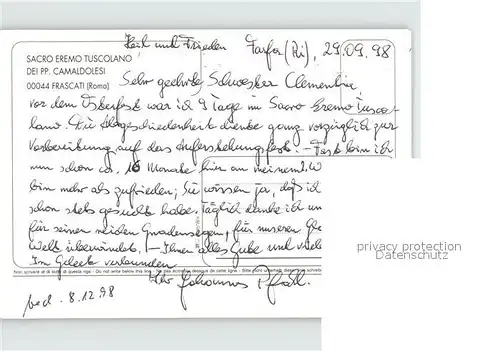 Heil und Frieden Farfa (Ri), 29.09.98
SACRO EREMO TUSCOLANO
DEI PP. CAMALDOLESI
00044 FRASCATI (Roma)
Sehr geehrte Schwester Clementine,
vor dem Osterfest war ich 9 Tage im Sacro Eremo Tuscolano
lano. Die Abgeschiedenheit diente ganz vorzüglich zur
Vorbereitung auf das Auferstehungsfest. – Fast bin ich
nun schon ca. 16 Monate hier an meinem
bin mehr als zufrieden; Sie wissen ja, daß ich
schon stets gesucht habe. Täglich danke ich
für seinen reichen Gnadensegen, für unseren
Welt überwindet. – Ihnen alles Gute und
Im Gebet verbunden
Ihr Johannes
Non scrivere al di sotto di questa riga - Do not write below this line - Ne pas écrire au dessous de cette ligne - Bitte nicht unterhalb dieser
8.12.98
privacy protection
Datenschutz